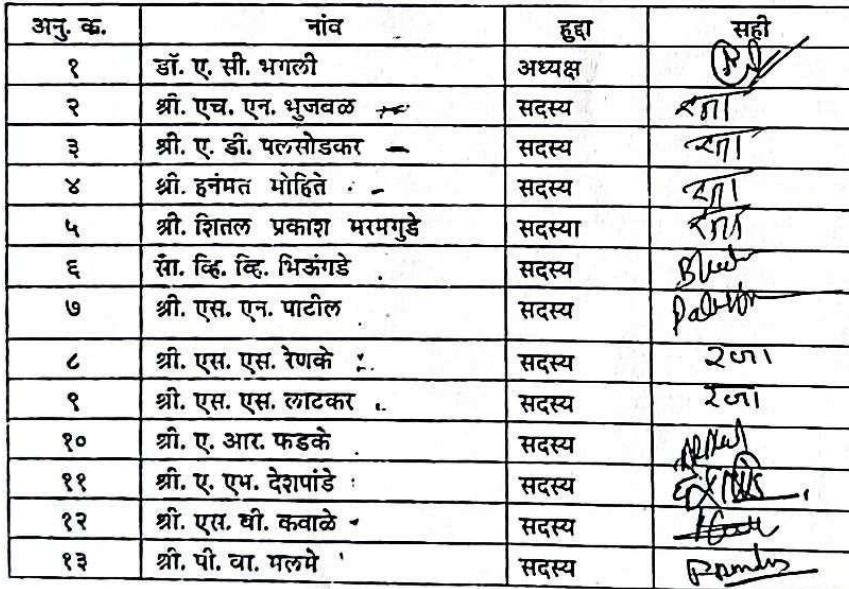 अनु. क. नांव हुद्दा सही
१ डॉ. ए. सी. भगली अध्यक्ष
२ श्री. एच. एन. भुजवळ सदस्य रजा
३ श्री. ए. डी. पलसोडकर सदस्य रजा
४ श्री. हनंमत मोहिते सदस्य रजा
५ श्री. शितल प्रकाश भरमगुडे सदस्या रजा
६ सौ. व्हि. व्हि. भिऊंगडे सदस्य
७ श्री. एस. एन. पाटील सदस्य
८ श्री. एस. एस. रेणके सदस्य रजा
९ श्री. एस. एस. लाटकर सदस्य रजा
१० श्री. ए. आर. फडके सदस्य
११ श्री. ए. एम. देशपांडे सदस्य
१२ श्री. एस. बी. कवाळे सदस्य
१३ श्री. पी. वा. मलमे सदस्य